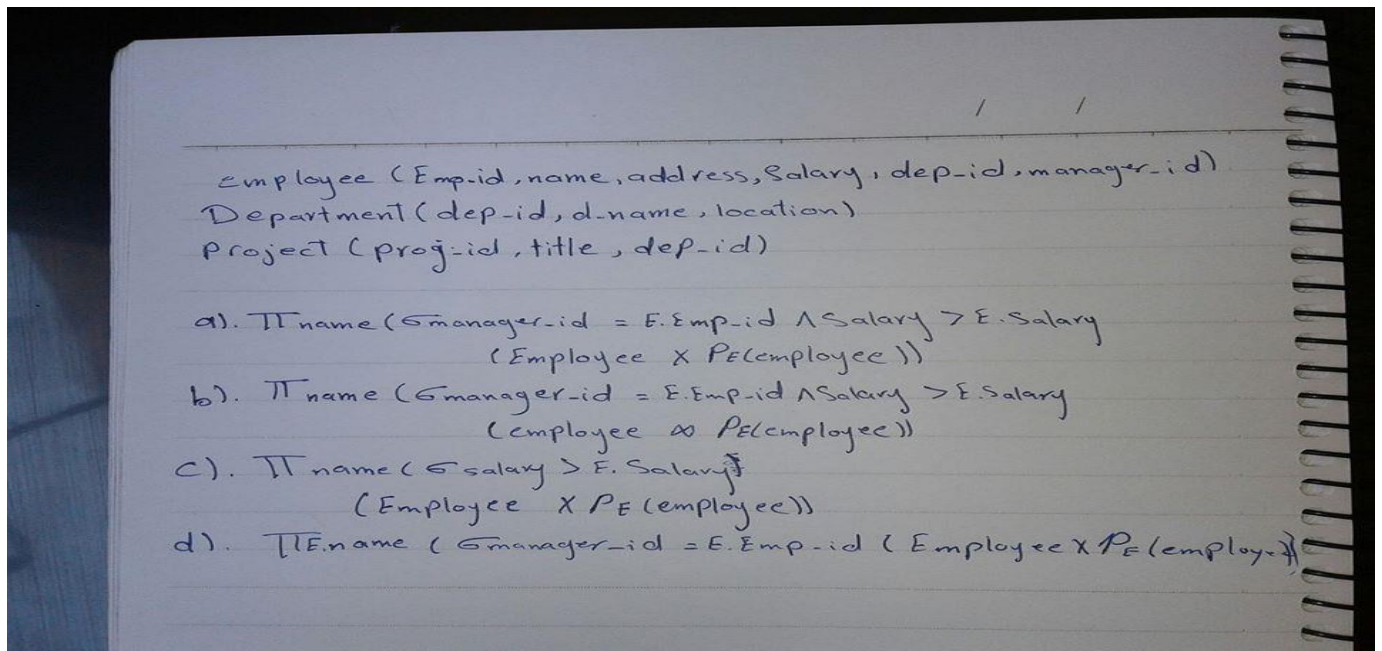 / /
Employee (Emp-id, name, address, Salary, dep-id, manager-id)
Department (dep-id, d-name, location)
Project (proj-id, title, dep-id)
a). Π name (σ manager-id = E.Emp-id ∧ Salary > E.Salary
(Employee X ρE(employee))
b). Π name (σ manager-id = E.Emp-id ∧ Salary > E.Salary
(employee ∞ ρE(employee))
c). Π name (σ salary > E.Salary
(Employee X ρE (employee))
d). ΠE.name (σ manager-id = E.Emp-id (Employee X ρE (employee))